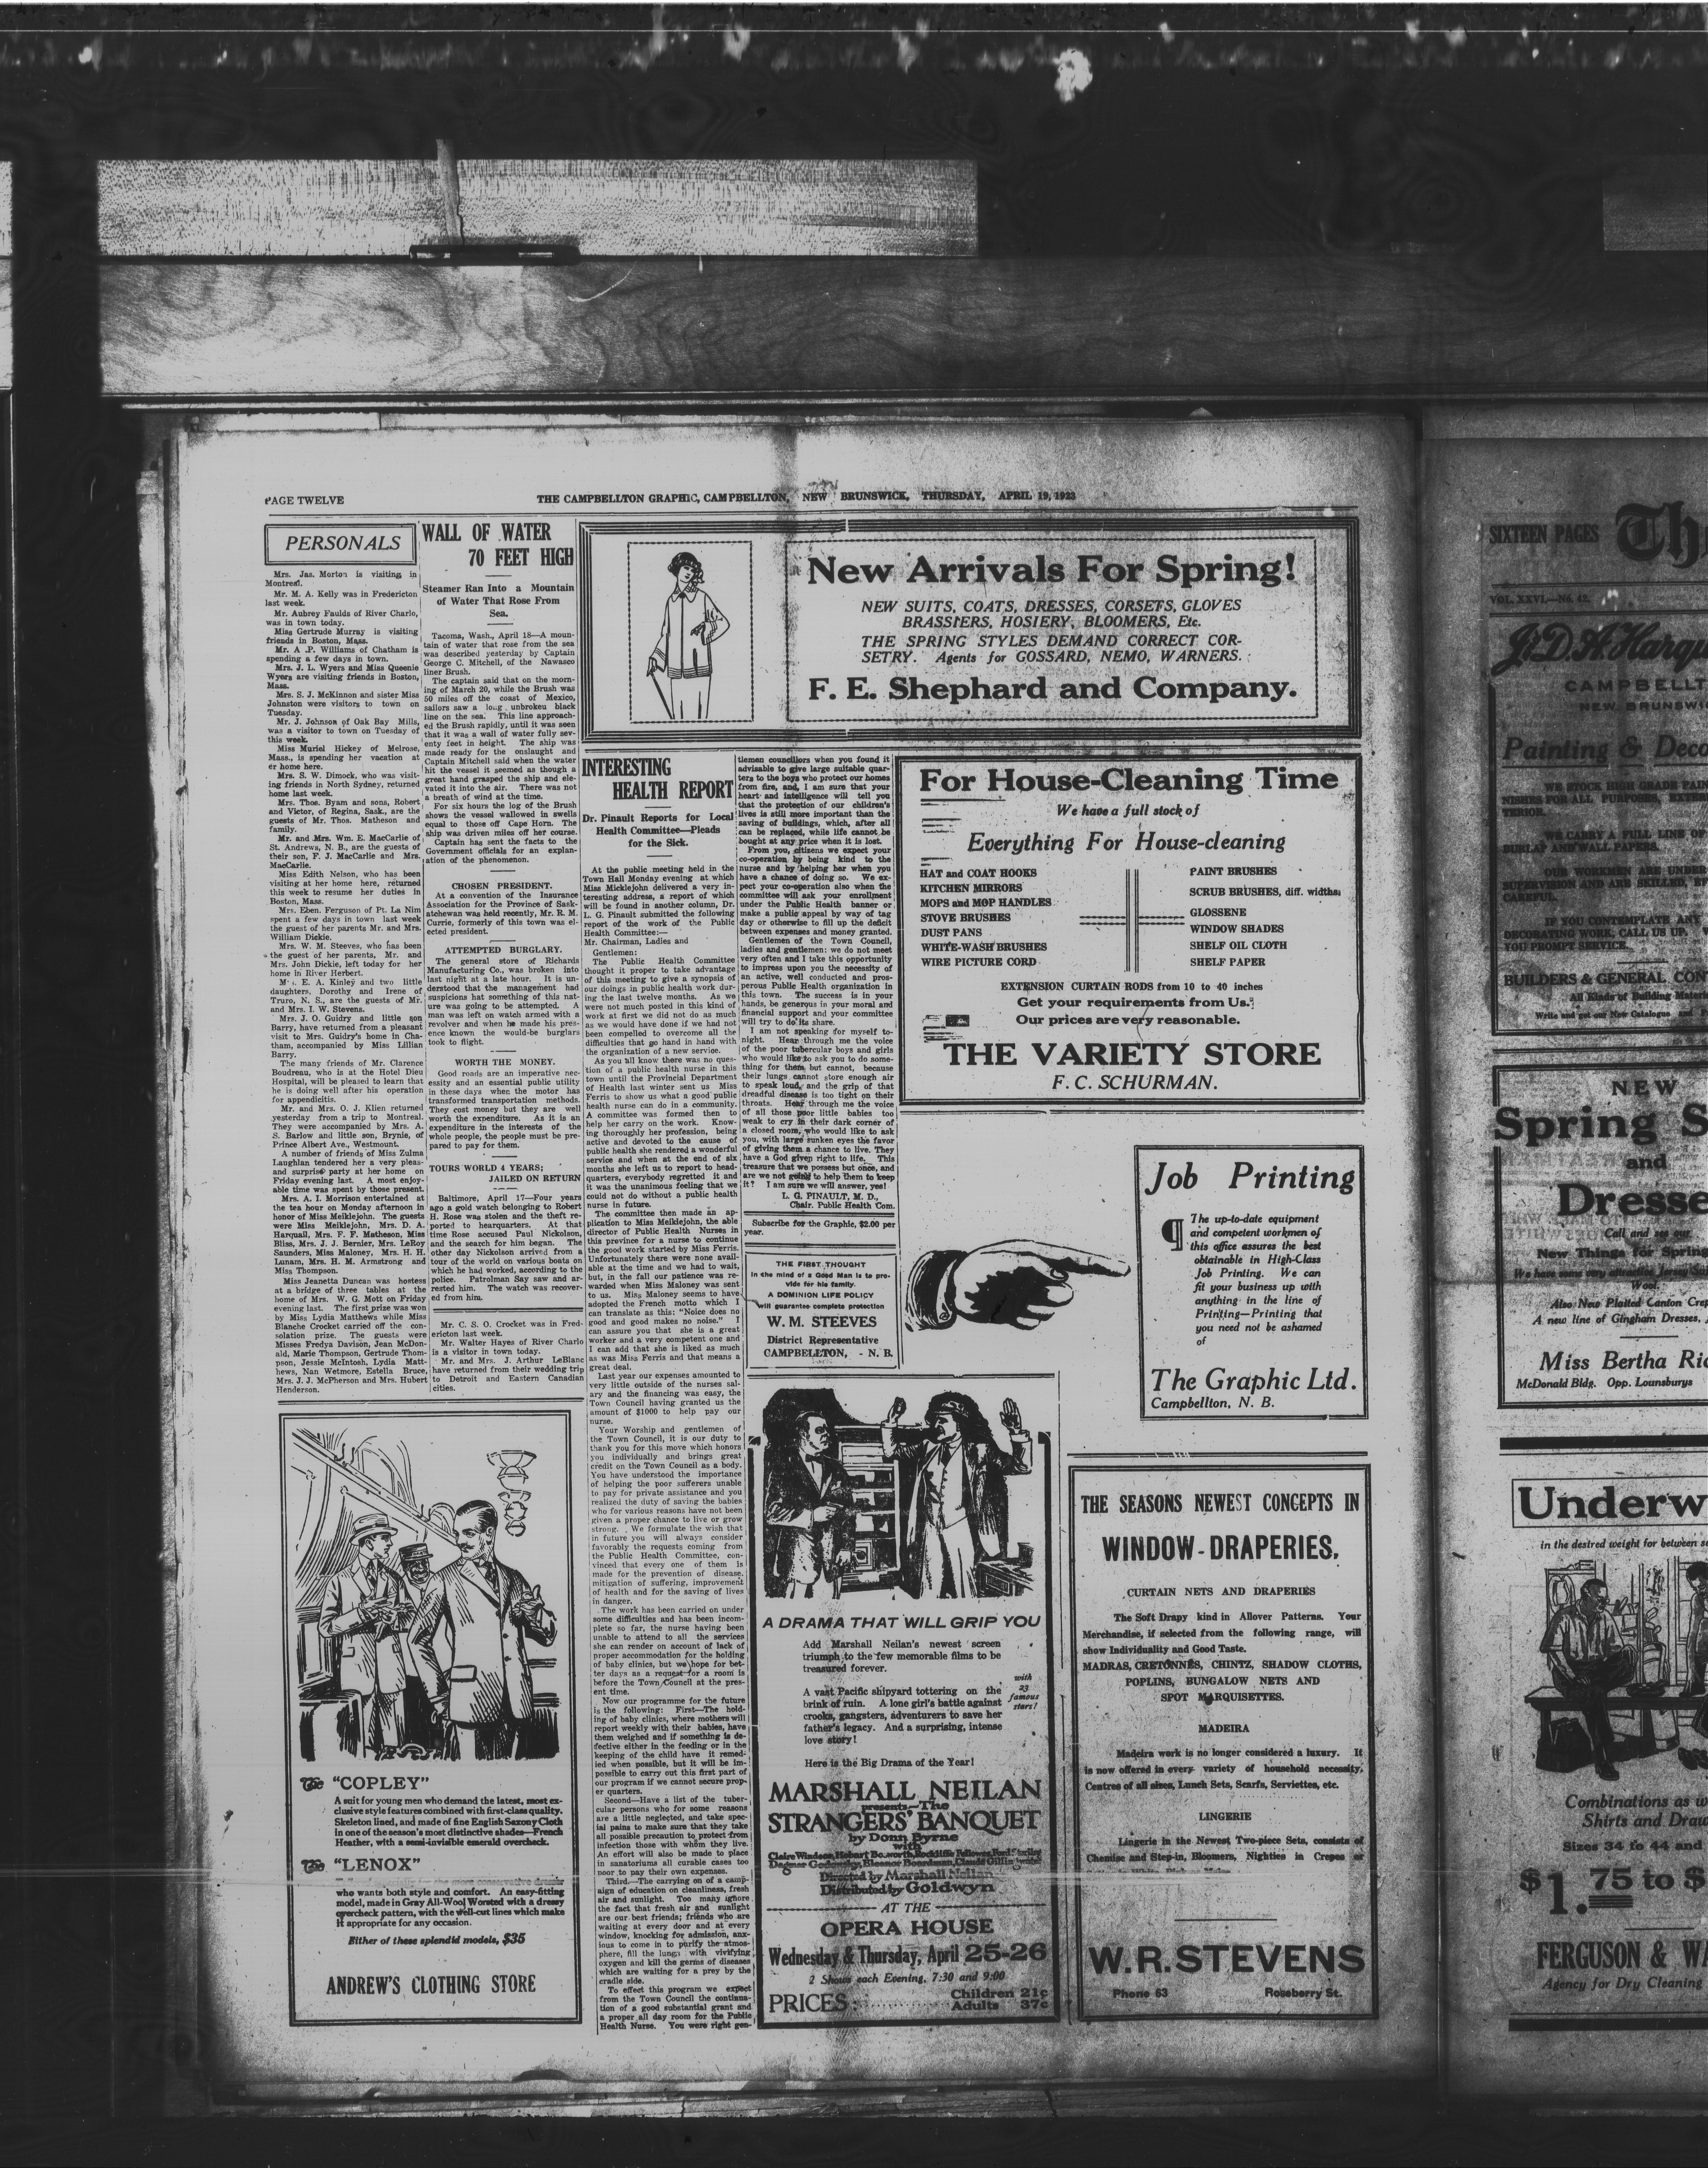 PAGE TWELVE
THE CAMPBELLTON GRAPHIC, CAMPBELLTON, NEW BRUNSWICK, THURSDAY, APRIL 19, 1923
PERSONALS
Mrs. Jas. Morton is visiting in
Montreal.
Mr. M. A. Kelly was in Fredericton
last week.
Mr. Aubrey Faulds of River Charlo,
was in town today.
Miss Gertrude Murray is visiting
friends in Boston, Mass.
Mr. A .P. Williams of Chatham is
spending a few days in town.
Mrs. J. L. Wyers and Miss Queenie
Wyers are visiting friends in Boston,
Mass.
Mrs. S. J. McKinnon and sister Miss
Johnston were visitors to town on
Tuesday.
Mr. J. Johnson of Oak Bay Mills,
was a visitor to town on Tuesday of
this week.
Miss Muriel Hickey of Melrose,
Mass., is spending her vacation at
er home here.
Mrs. S. W. Dimock, who was visit-
ing friends in North Sydney, returned
home last week.
Mrs. Thos. Byam and sons, Robert
and Victor, of Regina, Sask., are the
guests of Mr. Thos. Matheson and
family.
Mr. and Mrs. Wm. E. MacCarlie of
St. Andrews, N. B., are the guests of
their son, F. J. MacCarlie and Mrs.
MacCarlie.
Miss Edith Nelson, who has been
visiting at her home here, returned
this week to resume her duties in
Boston, Mass.
Mrs. Eben. Ferguson of Pt. La Nim
spent a few days in town last week
the guest of her parents Mr. and Mrs.
William Dickie.
Mrs. W. M. Steeves, who has been
the guest of her parents, Mr. and
Mrs. John Dickie, left today for her
home in River Herbert.
E. A. Kinley and two little
daughters, Dorothy and Irene of
Truro, N. S., are the guests of Mr.
and Mrs. I. W. Stevens.
Mrs. J. O. Guidry and little son
Barry, have returned from a pleasant
visit to Mrs. Guidry's home in Cha-
tham, accompanied by Miss Lillian
Barry.
The many friends of Mr. Clarence
Boudreau, who is at the Hotel Dieu
Hospital, will be pleased to learn that
he is doing well after his operation
for appendicitis.
Mr. and Mrs. O. J. Klien returned
yesterday from a trip to Montreal.
They were accompanied by Mrs. A.
S. Barlow and little son, Brynie, of
Prince Albert Ave., Westmount.
A number of friends of Miss Zulma
Laughlan tendered her a very pleas-
and surprise party at her home on
Friday evening last. A most enjoy-
able time was spent by those present.
Mrs. A. I. Morrison entertained at
the tea hour on Monday afternoon in
honor of Miss Meiklejohn. The guests
were Miss Meiklejohn, Mrs. D. A.
Harquail, Mrs. F. F. Matheson, Miss
Bliss, Mrs. J. J. Bernier, Mrs. LeRoy
Saunders, Miss Maloney, Mrs. H. H.
Lunam, Mrs. H. M. Armstrong and
Miss Thompson.
Miss Jeanetta Duncan was hostess
at a bridge of three tables at the
home of Mrs. W. G. Mott on Friday
evening last. The first prize was won
by Miss Lydia Matthews while Miss
Blanche Crocket carried off the con-
solation prize. The guests were
Misses Fredya Davison, Jean McDon-
ald, Marie Thompson, Gertrude Thom-
pson, Jessie McIntosh, Lydia Matt-
hews, Nan Wetmore, Estella Bruce,
Mrs. J. J. McPherson and Mrs. Hubert
Henderson.
WALL OF WATER
70 FEET HIGH
Steamer Ran Into a Mountain
of Water That Rose From
Sea.
Tacoma, Wash., April 18—A moun-
tain of water that rose from the sea
was described yesterday by Captain
George C. Mitchell, of the Nawasco
liner Brush.
The captain said that on the morn-
ing of March 20, while the Brush was
50 miles off the coast of Mexico,
sailors saw a long, unbroken black
line on the sea. This line approach-
ed the Brush rapidly, until it was seen
that it was a wall of water fully sev-
enty feet in height. The ship was
made ready for the onslaught and
Captain Mitchell said when the water
hit the vessel it seemed as though a
great hand grasped the ship and ele-
vated it into the air. There was not
a breath of wind at the time.
For six hours the log of the Brush
shows the vessel wallowed in swells
equal to those off Cape Horn. The
ship was driven miles off her course.
Captain has sent the facts to the
Government officials for an explan-
ation of the phenomenon.
CHOSEN PRESIDENT.
At a convention of the Insurance
Association for the Province of Sask-
atchewan was held recently, Mr. R. M.
Currie, formerly of this town was el-
ected president.
ATTEMPTED BURGLARY.
The general store of Richards
Manufacturing Co., was broken into
last night at a late hour. It is un-
derstood that the management had
suspicions hat something of this nat-
ure was going to be attempted. A
man was left on watch armed with a
revolver and when he made his pres-
ence known the would-be burglars
took to flight.
WORTH THE MONEY.
Good roads are an imperative nec-
essity and an essential public utility
in these days when the motor has
transformed transportation methods.
They cost money but they are well
worth the expenditure. As it is an
expenditure in the interests of the
whole people, the people must be pre-
pared to pay for them.
TOURS WORLD 4 YEARS;
JAILED ON RETURN
Baltimore, April 17—Four years
ago a gold watch belonging to Robert
H. Rose was stolen and the theft re-
ported to hearquarters. At that
time Rose accused Paul Nickolson,
and the search for him began. The
other day Nickolson arrived from a
tour of the world on various boats on
which he had worked, according to the
police. Patrolman Say saw and ar-
rested him. The watch was recover-
ed from him.
Mr. C. S. O. Crocket was in Fred-
ericton last week.
Mr. Walter Hayes of River Charlo
is a visitor in town today.
Mr. and Mrs. J. Arthur LeBlanc
have returned from their wedding trip
to Detroit and Eastern Canadian
cities.
New Arrivals For Spring!
NEW SUITS, COATS, DRESSES, CORSETS, GLOVES
BRASSIERS, HOSIERY, BLOOMERS, Etc.
THE SPRING STYLES DEMAND CORRECT COR-
SETRY. Agents for GOSSARD, NEMO, WARNERS.
F. E. Shephard and Company.
INTERESTING
HEALTH REPORT
Dr. Pinault Reports for Local
Health Committee—Pleads
for the Sick.
At the public meeting held in the
Town Hall Monday evening at which
Miss Micklejohn delivered a very in-
teresting address, a report of which
will be found in another column, Dr.
L. G. Pinault submitted the following
report of the work of the Public
Health Committee:—
Mr. Chairman, Ladies and
Gentlemen:
The Public Health Committee
thought it proper to take advantage
of this meeting to give a synopsis of
our doings in public health work dur-
ing the last twelve months. As we
were not much posted in this kind of
work at first we did not do as much
as we would have done if we had not
been compelled to overcome all the
difficulties that go hand in hand with
the organization of a new service.
As you all know there was no ques-
tion of a public health nurse in this
town until the Provincial Department
of Health last winter sent us Miss
Ferris to show us what a good public
health nurse can do in a community.
A committee was formed then to
help her carry on the work. Know-
ing thoroughly her profession, being
active and devoted to the cause of
public health she rendered a wonderful
service and when at the end of six
months she left us to report to head-
quarters, everybody regretted it and
it was the unanimous feeling that we
could not do without a public health
nurse in future.
The committee then made an ap-
plication to Miss Meiklejohn, the able
director of Public Health Nurses in
this province for a nurse to continue
the good work started by Miss Ferris.
Unfortunately there were none avail-
able at the time and we had to wait,
but, in the fall our patience was re-
warded when Miss Maloney was sent
to us. Miss Maloney seems to have
adopted the French motto which I
can translate as this: "Noice does no
good and good makes no noise." I
can assure you that she is a great
worker and a very competent one and
I can add that she is liked as much
as was Miss Ferris and that means a
great deal.
Last year our expenses amounted to
very little outside of the nurses sal-
ary and the financing was easy, the
Town Council having granted us the
amount of $1000 to help pay our
nurse.
Your Worship and gentlemen of
the Town Council, it is our duty to
thank you for this move which honors
you individually and brings great
credit on the Town Council as a body.
You have understood the importance
of helping the poor sufferers unable
to pay for private assistance and you
realized the duty of saving the babies
who for various reasons have not been
given a proper chance to live or grow
strong. We formulate the wish that
in future you will always consider
favorably the requests coming from
the Public Health Committee, con-
vinced that every one of them is
made for the prevention of disease,
mitigation of suffering, improvement
of health and for the saving of lives
in danger.
The work has been carried on under
some difficulties and has been incom-
plete so far, the nurse having been
unable to attend to all the services
she can render on account of lack of
proper accommodation for the holding
of baby clinics, but we hope for bet-
ter days as a request for a room is
before the Town Council at the pres-
ent time.
Now our programme for the future
is the following: First—The hold-
ing of baby clinics, where mothers will
report weekly with their babies, have
them weighed and if something is de-
fective either in the feeding or in the
keeping of the child have it remed-
ied when possible, but it will be im-
possible to carry out this first part of
our program if we cannot secure prop-
er quarters.
Second—Have a list of the tuber-
cular persons who for some reasons
are a little neglected, and take spec-
ial pains to make sure that they take
all possible precaution to protect from
infection those with whom they live.
An effort will also be made to place
in sanatoriums all curable cases too
poor to pay their own expenses.
Third.—The carrying on of a camp-
aign of education on cleanliness, fresh
air and sunlight. Too many ignore
the fact that fresh air and sunlight
are our best friends; friends who are
waiting at every door and at every
window, knocking for admission, anx-
ious to come in to purify the atmos-
phere, fill the lungs with vivifying
oxygen and kill the germs of diseases
which are waiting for a prey by the
cradle side.
To effect this program we expect
from the Town Council the continua-
tion of a good substantial grant and
a proper all day room for the Public
Health Nurse. You were right gen-
tlemen councillors when you found it
advisable to give large suitable quar-
ters to the boys who protect our homes
from fire, and, I am sure that your
heart and intelligence will tell you
that the protection of our children's
lives is still more important than the
saving of buildings, which, after all
can be replaced, while life cannot be
bought at any price when it is lost.
From you, citizens we expect your
co-operation by being kind to the
nurse and by helping her when you
have a chance of doing so. We ex-
pect your co-operation also when the
committee will ask your enrollment
under the Public Health banner or
make a public appeal by way of tag
day or otherwise to fill up the deficit
between expenses and money granted.
Gentlemen of the Town Council,
ladies and gentlemen: we do not meet
very often and I take this opportunity
to impress upon you the necessity of
an active, well conducted and pros-
perous Public Health organization in
this town. The success is in your
hands, be generous in your moral and
financial support and your committee
will try to do its share.
I am not speaking for myself to-
night. Hear through me the voice
of the poor tubercular boys and girls
who would like to ask you to do some-
thing for them but cannot, because
their lungs cannot store enough air
to speak loud, and the grip of that
dreadful disease is too tight on their
throats. Hear through me the voice
of all those poor little babies too
weak to cry in their dark corner of
a closed room, who would like to ask
you, with large sunken eyes the favor
of giving them a chance to live. They
have a God given right to life. This
treasure that we possess but once, and
are we not going to help them to keep
it? I am sure we will answer, yes!
L. G. PINAULT, M. D.,
Chair. Public Health Com.
Subscribe for the Graphic, $2.00 per
year.
THE FIRST THOUGHT
in the mind of a Good Man is to pro-
vide for his family.
A DOMINION LIFE POLICY
will guarantee complete protection
W. M. STEEVES
District Representative
CAMPBELLTON, - N. B.
For House-Cleaning Time
We have a full stock of
Everything For House-cleaning
HAT and COAT HOOKS
KITCHEN MIRRORS
MOPS and MOP HANDLES
STOVE BRUSHES
DUST PANS
WHITE-WASH BRUSHES
WIRE PICTURE CORD
PAINT BRUSHES
SCRUB BRUSHES, diff. widths
GLOSSENE
WINDOW SHADES
SHELF OIL CLOTH
SHELF PAPER
EXTENSION CURTAIN RODS from 10 to 40 inches
Get your requirements from Us.
Our prices are very reasonable.
THE VARIETY STORE
F. C. SCHURMAN.
Job Printing
¶ The up-to-date equipment
and competent workmen of
this office assures the best
obtainable in High-Class
Job Printing. We can
fit your business up with
anything in the line of
Printing—Printing that
you need not be ashamed
of
The Graphic Ltd.
Campbellton, N. B.
The "COPLEY"
A suit for young men who demand the latest, most ex-
clusive style features combined with first-class quality.
Skeleton lined, and made of fine English Saxony Cloth
in one of the season's most distinctive shades—French
Heather, with a semi-invisible emerald overcheck.
The "LENOX"
who wants both style and comfort. An easy-fitting
model, made in Gray All-Wool Worsted with a dressy
overcheck pattern, with the well-cut lines which make
it appropriate for any occasion.
Either of these splendid models, $35
ANDREW'S CLOTHING STORE
A DRAMA THAT WILL GRIP YOU
Add Marshall Neilan's newest screen
triumph to the few memorable films to be
treasured forever.
A vast Pacific shipyard tottering on the
brink of ruin. A lone girl's battle against
crooks, gangsters, adventurers to save her
father's legacy. And a surprising, intense
love story!
with
23
famous
stars!
Here is the Big Drama of the Year!
MARSHALL NEILAN
presents—The
STRANGERS' BANQUET
by Donn Byrne
with
Claire Windsor, Hobart Bosworth, Rockliffe Fellowes, Ford Sterling
Dagmar Godowsky, Eleanor Boardman, Claude Gillingwater
Directed by Marshall Neilan
Distributed by Goldwyn
AT THE
OPERA HOUSE
Wednesday & Thursday, April 25-26
2 Shows each Evening, 7:30 and 9:00
PRICES: Children 21c
Adults 37c
THE SEASONS NEWEST CONCEPTS IN
WINDOW-DRAPERIES.
CURTAIN NETS AND DRAPERIES
The Soft Drapy kind in Allover Patterns. Your
Merchandise, if selected from the following range, will
show Individuality and Good Taste.
MADRAS, CRETONNES, CHINTZ, SHADOW CLOTHS,
POPLINS, BUNGALOW NETS AND
SPOT MARQUISETTES.
MADEIRA
Madeira work is no longer considered a luxury. It
is now offered in every variety of household necessity.
Centres of all sizes, Lunch Sets, Scarfs, Serviettes, etc.
LINGERIE
Lingerie in the Newest Two-piece Sets, consists of
Chemise and Step-in, Bloomers, Nighties in Crepes or
W.R. STEVENS
Phone 63
Roseberry St.
SIXTEEN PAGES
VOL. XXVI.—No. 42.
J. D. A. Harqu
CAMPBELLT
NEW BRUNSWI
Painting & Deco
WE STOCK HIGH GRADE PAIN
NISHES FOR ALL PURPOSES, EXTER
TERIOR.
WE CARRY A FULL LINE OF
BURLAP AND WALL PAPERS.
OUR WORKMEN ARE UNDER
SUPERVISION AND ARE SKILLED,
CAREFUL.
IF YOU CONTEMPLATE ANY
DECORATING WORK, CALL US UP.
YOU PROMPT SERVICE.
BUILDERS & GENERAL CON
All Kinds of Building Mater
Write and get our New Catalogue and
NEW
Spring S
and
Dresse
Call and see our
New Things for Spring
We have some very attractive Jersey Sui
Wool.
Also New Plaited Canton Crep
A new line of Gingham Dresses,
Miss Bertha Ric
McDonald Bldg. Opp. Lounsburys
Underw
in the desired weight for between s
Combinations as w
Shirts and Draw
Sizes 34 to 44 and
$1.75 to $
FERGUSON & WA
Agency for Dry Cleaning